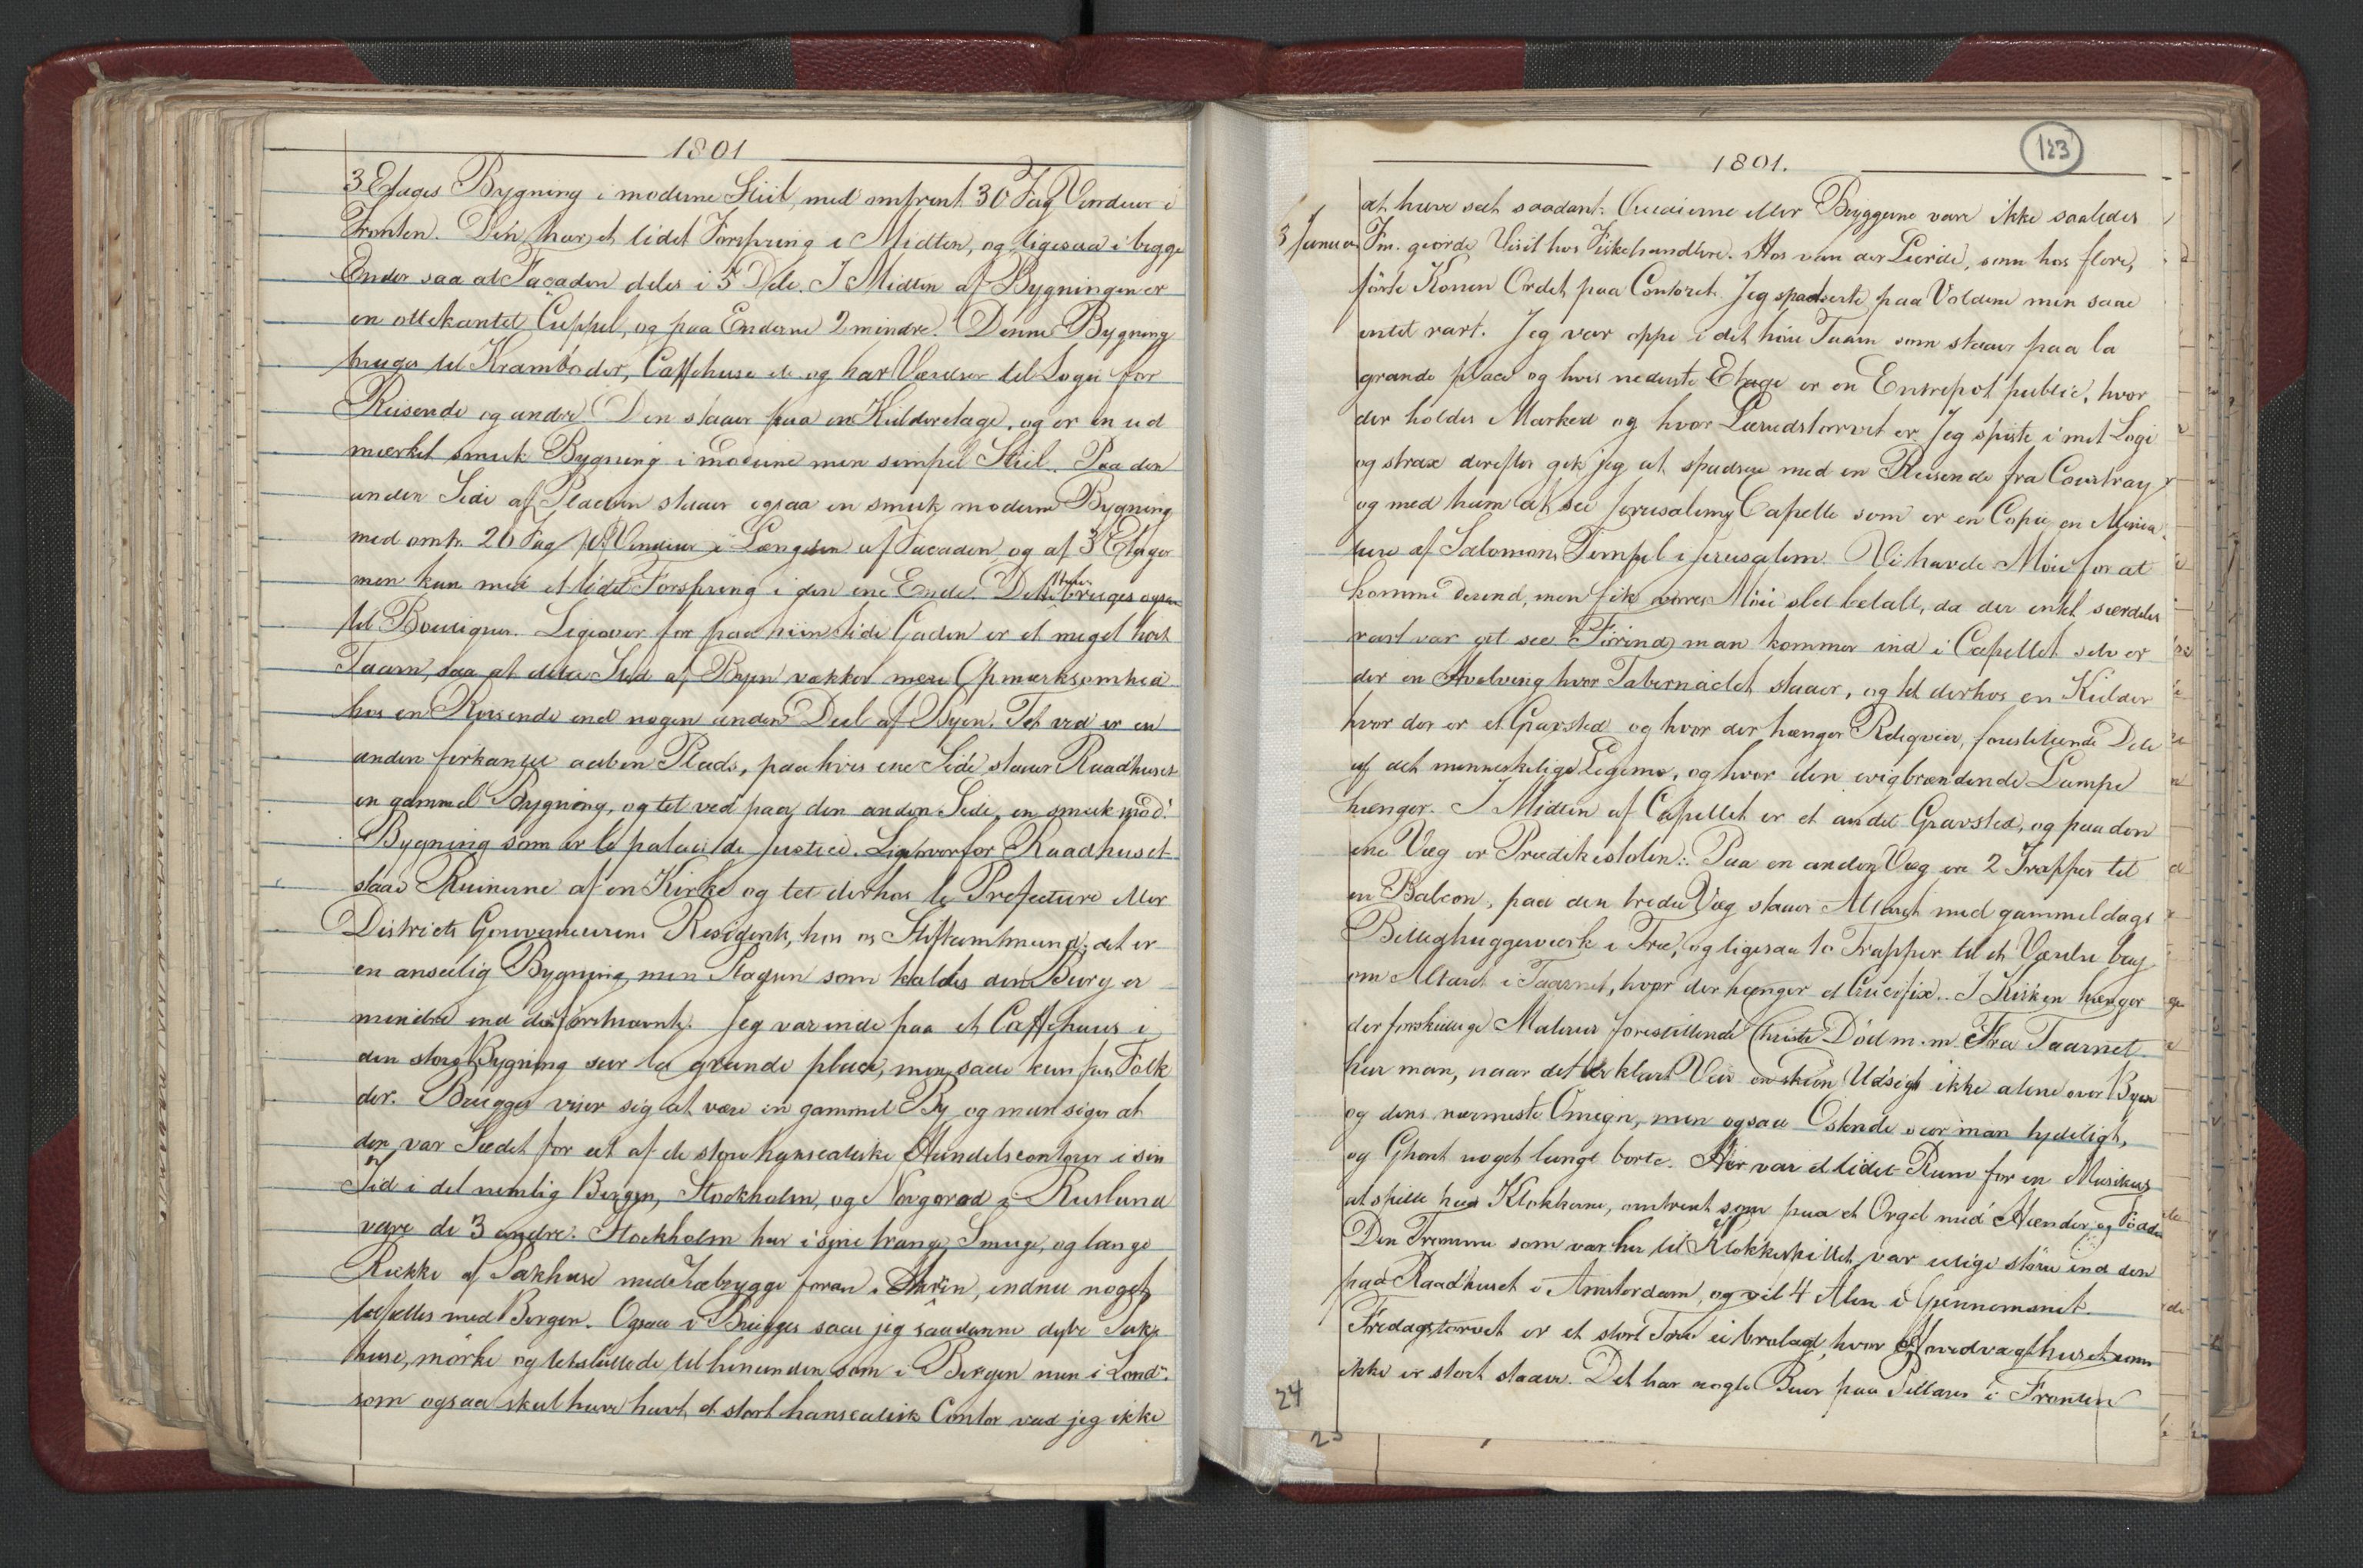 1801
3 Etages Bygning i moderne Stiil, med omtrent 30 Fag Vinduer i
Fronten. Den har et lidet Forspring i Midten, og ligesaa i begge
Ender saa at Façaden deles i 5 Dele. I Midten af Bygningen er
en ottekantet Cuppel, og paa Enderne 2 mindre. Denne Bygning
bruges til Kramboder, Caffehuse etc og har Værelser til Logie for
Reisende og andre. Den staaer paa en Kielderetage, og er en ud
mærket smuk Bygning i moderne men simpel Stiil. Paa den
anden Side af Pladsen staaer ogsaa en smuk moderne Bygning
med omtr. 20 Fag Vinduer i Længden af Facaden og af 3 Etager
men kun med et lidet Forspring i den ene Ende. Dette bruges ogsaa
til Boutiquer. Ligeover for paa hiin Side Gaden er et meget høit
Taarn, saa at dette Sted af Byen vækker mere Opmærksomhed
hos en Reisende end nogen anden Deel af Byen. Tet ved er en
anden firkantet aaben Plads, paa hvis ene Side staaer Raadhuset
en gammel Bygning, og tet ved paa den anden Side, en smuk mod:
Bygning som er le palais de justice. Ligeoverfor Raadhuset
staae Ruinerne af en Kirke og tet derhos le Prefecture eller
Districts Gouverneurens Residents, hos os Stiftamtmand; det er
en anseelig Bygning, men Pladsen som kaldes den Burg er
mindre end den førstnævnte. Jeg var inde paa et Caffehuus i
den store Bygning sur la grande place, men saae kun faa Folk
der. Brügges viser sig at være en gammel By og man siger at
den var Sædet for et af de store hanseatiske Handelscontoirer i sin
Tid i det nemlig Bergen, Stockholm, og Novgorod i Rusland
vare de 3 andre. Stockholm har i sine trange Smuge, og lange
Række af Pakhuse med Søebrygge foran i Skeppsbron, endnu noget
tilfælles med Bergen. Ogsaa i Brügges saae jeg saadanne dybe Pak
huse, mørke og tetsluttede til hinanden som i Bergen men i Lond:
som ogsaa skal have havt et stort hanseatisk Contor veed jeg ikke
123
1801.
at have seet saadant. Quaierne eller Bryggerne vare ikke saaledes
3 Januar Fm. giorde Visit hos Fiskehandlere. Hos van der Leeride, som hos flere,
førte Konen Ordet paa Contoret. Jeg spadserte paa Voldene men saae
intet rart. Jeg var oppe i det høie Taarn som staaer paa la
grande place og hvis nederste Etage er en Entrepot public, hvor
der holdes Marked og hvor Lærredstorvet er. Jeg spiste i mit Logi
og strax derefter gik jeg ut spadsere med en Reisende fra Courtray
og med ham at see Jerusalems Capelle som er en Copie en Minia
ture af Salomons Tempel i Jerusalem. Vi havde Møie for at
komme derind, men fik vores Møie slet betalt, da der intet særdeles
rart var at see. Førend man kommer ind i Capellet selv er
der en Hvelving hvor Tabernaclet staaer, og tet derhos en Kielder
hvor der er et Gravsted og hvor der hænger Reliqvier, forestillende Dele
af det menneskelige Legeme, og hvor den evigbrændende Lampe
hænger. I Midten af Capellet er et andet Gravsted, og paa den
ene Væg er Prædikestolen: Paa en anden Væg ere 2 Trapper til
en Balcon, paa den tredie Væg staaer Altaret med gammeldags
Billedhuggerværk i Træ, og ligesaa to Trapper til et Værelse bag
om Altaret i Taarnet, hvor der hænger et Crucifix. I Kirken hænger
der forskiellige Malerier forestillende Christi Død m.m. Fra Taarnet
har man, naar det er klart Veir en skiøn Udsigt ikke alene over Byen
og dens nærmeste Omegn, men ogsaa Ostende seer man tydeligt,
og Ghent noget langt borte. Her var et lidet Rum for en Musikus
at spille paa Klokkerne, omtrent som paa et Orgel med Hænder og Fødder
Den Tromme som var her til Klokkespillet, var ulige større end den
paa Raadhuset i Amsterdam, og vel 4 Alen i Giennemsnit.
Fredagstorvet er et stort Torv ei brolagt, hvor Hovedvagthuset som
ikke er stort staaer. Det har nogle Buer paa Pillarer i Fronten
24
25